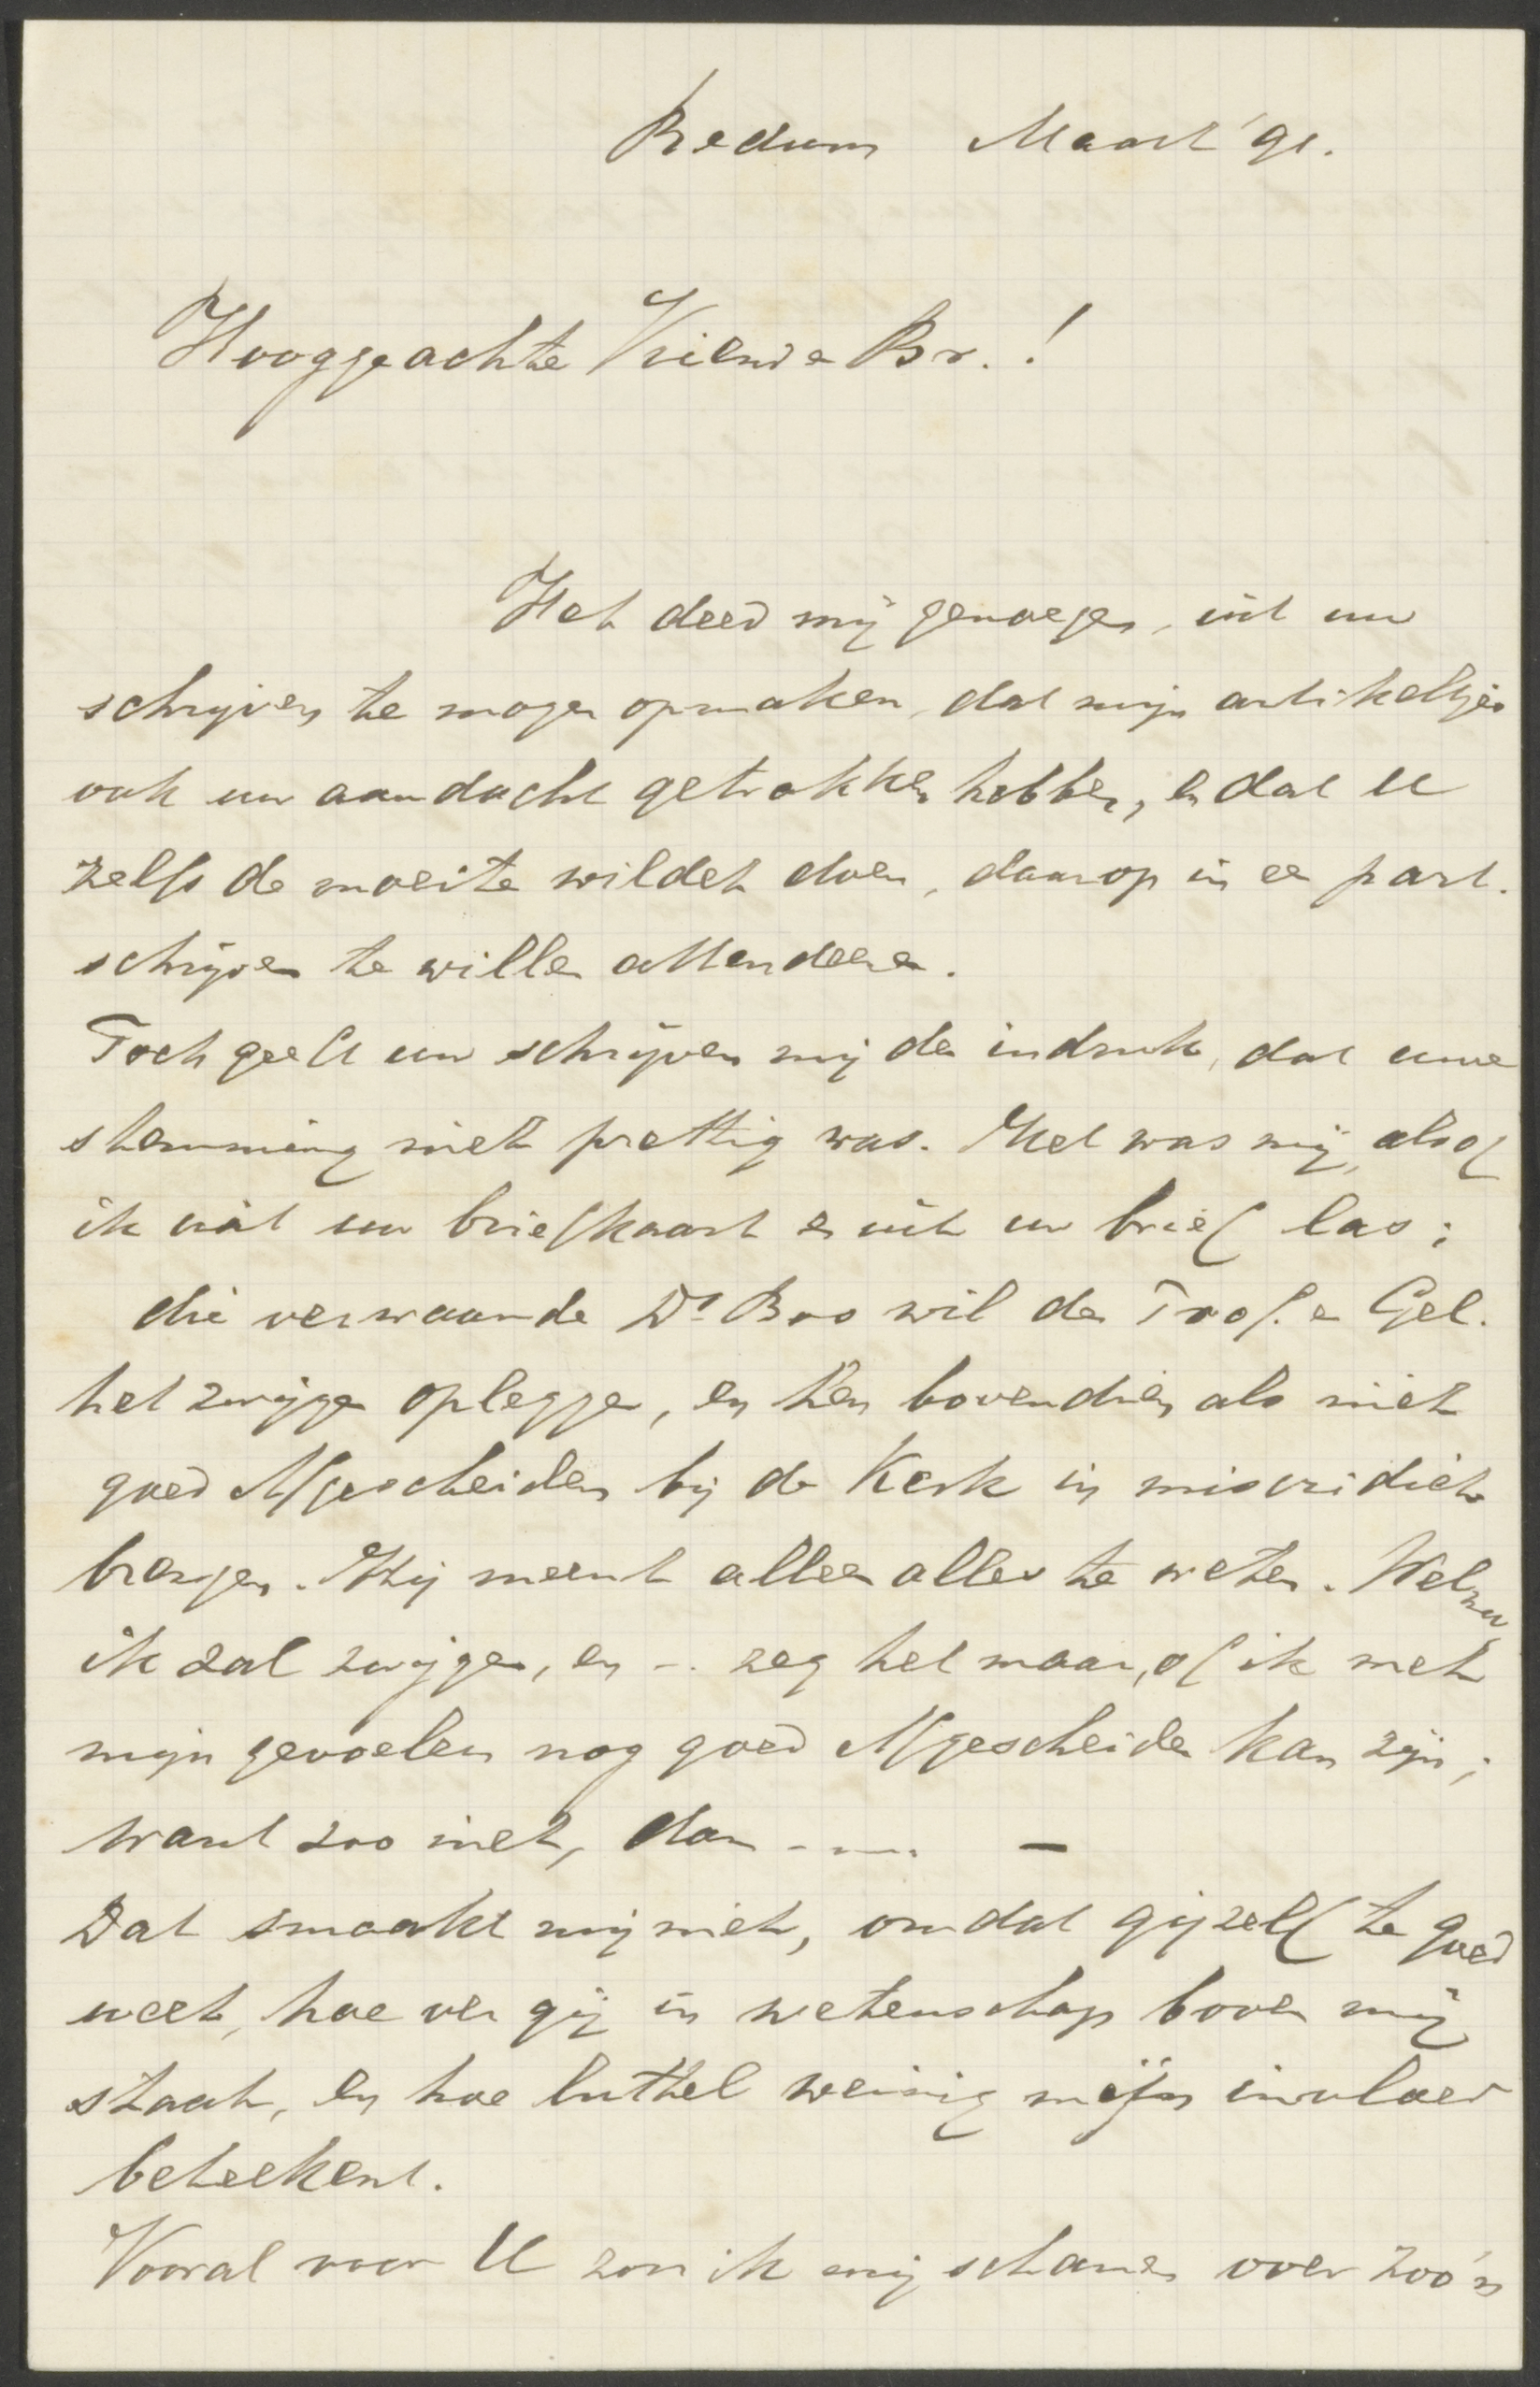 Bedum Maart '91.
Hooggeachte Vriend e Br.!
Het deed mij genoegen, uit uw
schrijven te mogen opmaken, dat mijn artikeltjes
ook uw aandacht getrokken hebben, en dat U
zelfs de moeite wildet doen, daarop in een part.
schrijven te willen attendeeren.
Toch geeft uw schrijven mij den indruk, dat uwe
stemming niet prettig was. Het was mij, alsof
ik uit uw briefkaart en uit uw brief las;
die verwaande Ds Bos wil den Prof. en Gel.
het zwijgen opleggen, en hen bovendien als niet
goed Afgescheiden bij de Kerk in miscridiet
brengen. Hij meent alleen alles te weten. Welnu,
ik zal zwijgen, en -. zeg het maar, of ik met
mijn gevoelen nog goed Afgescheiden kan zijn;
want zoo niet, dan - -... —
Dat smaakt mij niet, omdat gij zelf te goed
weet, hoe ver gij in wetenschap boven mij
staat, en hoe luttel weinig mijn invloed
beteekent.
Vooral voor U zou ik mij schamen over zoo'n